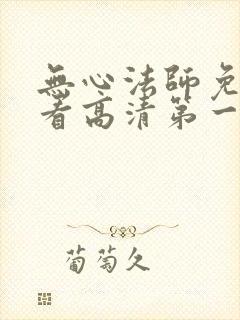 無心法師免
看高清第一
葡萄久